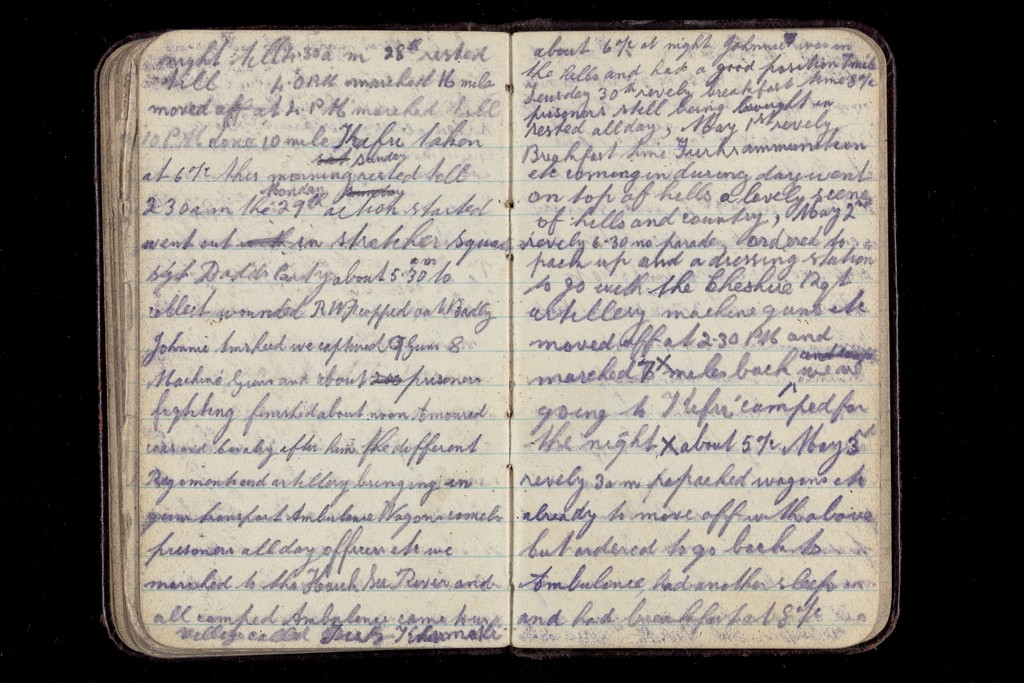 night till 2.30 a m 28th rested
till 4.0 AM marched 16 mile
moved off at 4 PM marched till
10 PM done 10 mile Kufri taken
Sunday
at 6 % this morning rested till
Monday
2 30 a m the 29th action started
went out in stretcher squad
sgt Dodds Party about 5.30 am to
collect wounded RWF copped out Badly
Johnnie hushed we captured 9 Guns 8
Machine Guns and about 200 prisoners
fighting finished about noon Amoured
cars and Cavalry after him The different
Regoments and artillery bringing in
guns transport Ambulance Wagons camels
prisoners all day officers etc we
marched to the River and
all camped Ambulance came
village called
about 6 % at night Johnnie was in
the hills and had a good position 7 mile
Teusday 30th revely breakfast time 8 %
prisoners still being brought in
rested all day, May 1st revely
Breakfast time Turks ammunition
etc coming in during day went
on top of hills a lovely scene
of hills and country, May 2nd
revely 6.30 no parade, ordered to
pack up and a dressing station
to go with the Cheshire Rgt
artillery machine guns etc
moved off at 2.30 PM and
marched 7 X miles back we are
going to Kufri camped for
the night X about 5 % May 3rd
revely 3 a m packed wagons etc
already to move off with above
but ordered to go back to
Ambulance, had another sleep
and had breakfast at 8 %